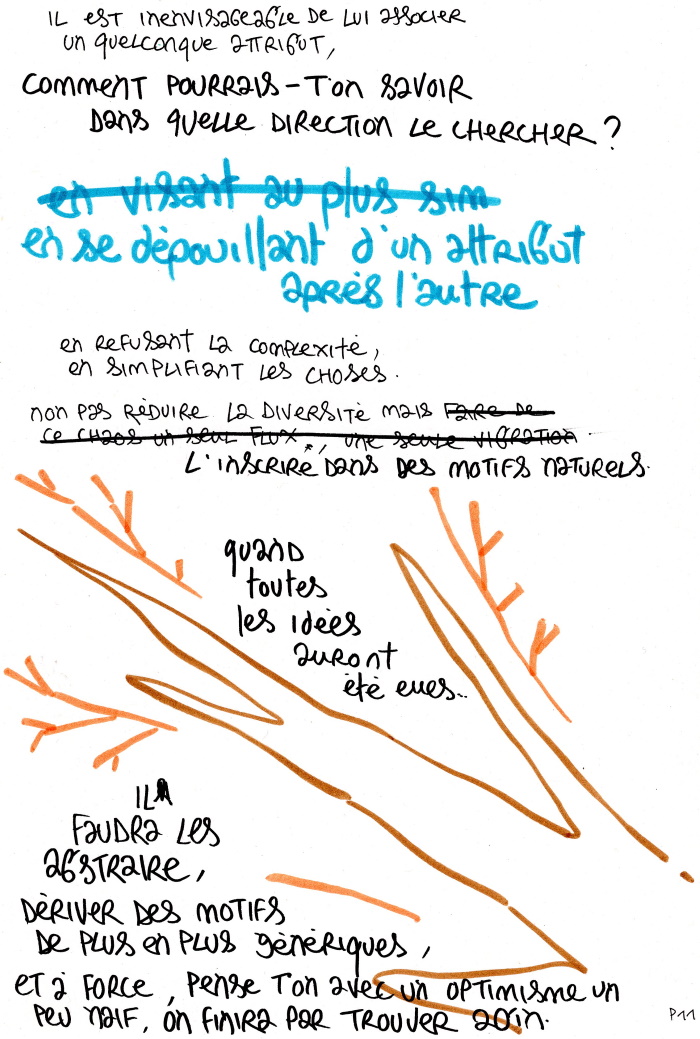 IL EST INENVISAGEABLE DE LUI ASSOCIER
UN QUELCONQUE ATTRIBUT,
COMMENT POURRAIS-T'ON SAVOIR
DANS QUELLE DIRECTION LE CHERCHER ?
en visant au plus sim
en se dépouillant d'un attribut
après l'autre
en REFUSANT LA COMPLEXITÉ,
en SIMPLIFIANT LES CHOSES.
non PAS RÉDUIRE LA DIVERSITÉ MAIS FAIRE DE
CE CHAOS UN SEUL FLUX, UNE SEULE VIBRATION.
L'INSCRIRE DANS DES MOTIFS NATURELS.
quand
toutes
les idées
auront
été eues...
IL
FAUDRA LES
ABSTRAIRE,
DÉRIVER DES MOTIFS
DE PLUS en PLUS génériques,
ET à FORCE, PENSE T'ON avec un OPTIMISME un
PEU NAIF, on FINIRA PAR TROUVER
P11